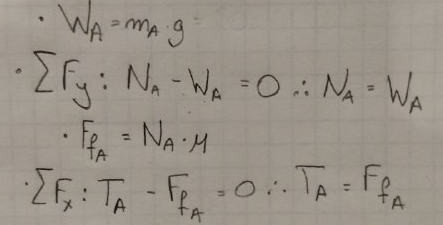 · W_A = m_A · g
· ΣF_y : N_A - W_A = 0 ∴ N_A = W_A
· F_{f_A} = N_A · μ
· ΣF_x : T_A - F_{f_A} = 0 ∴ T_A = F_{f_A}